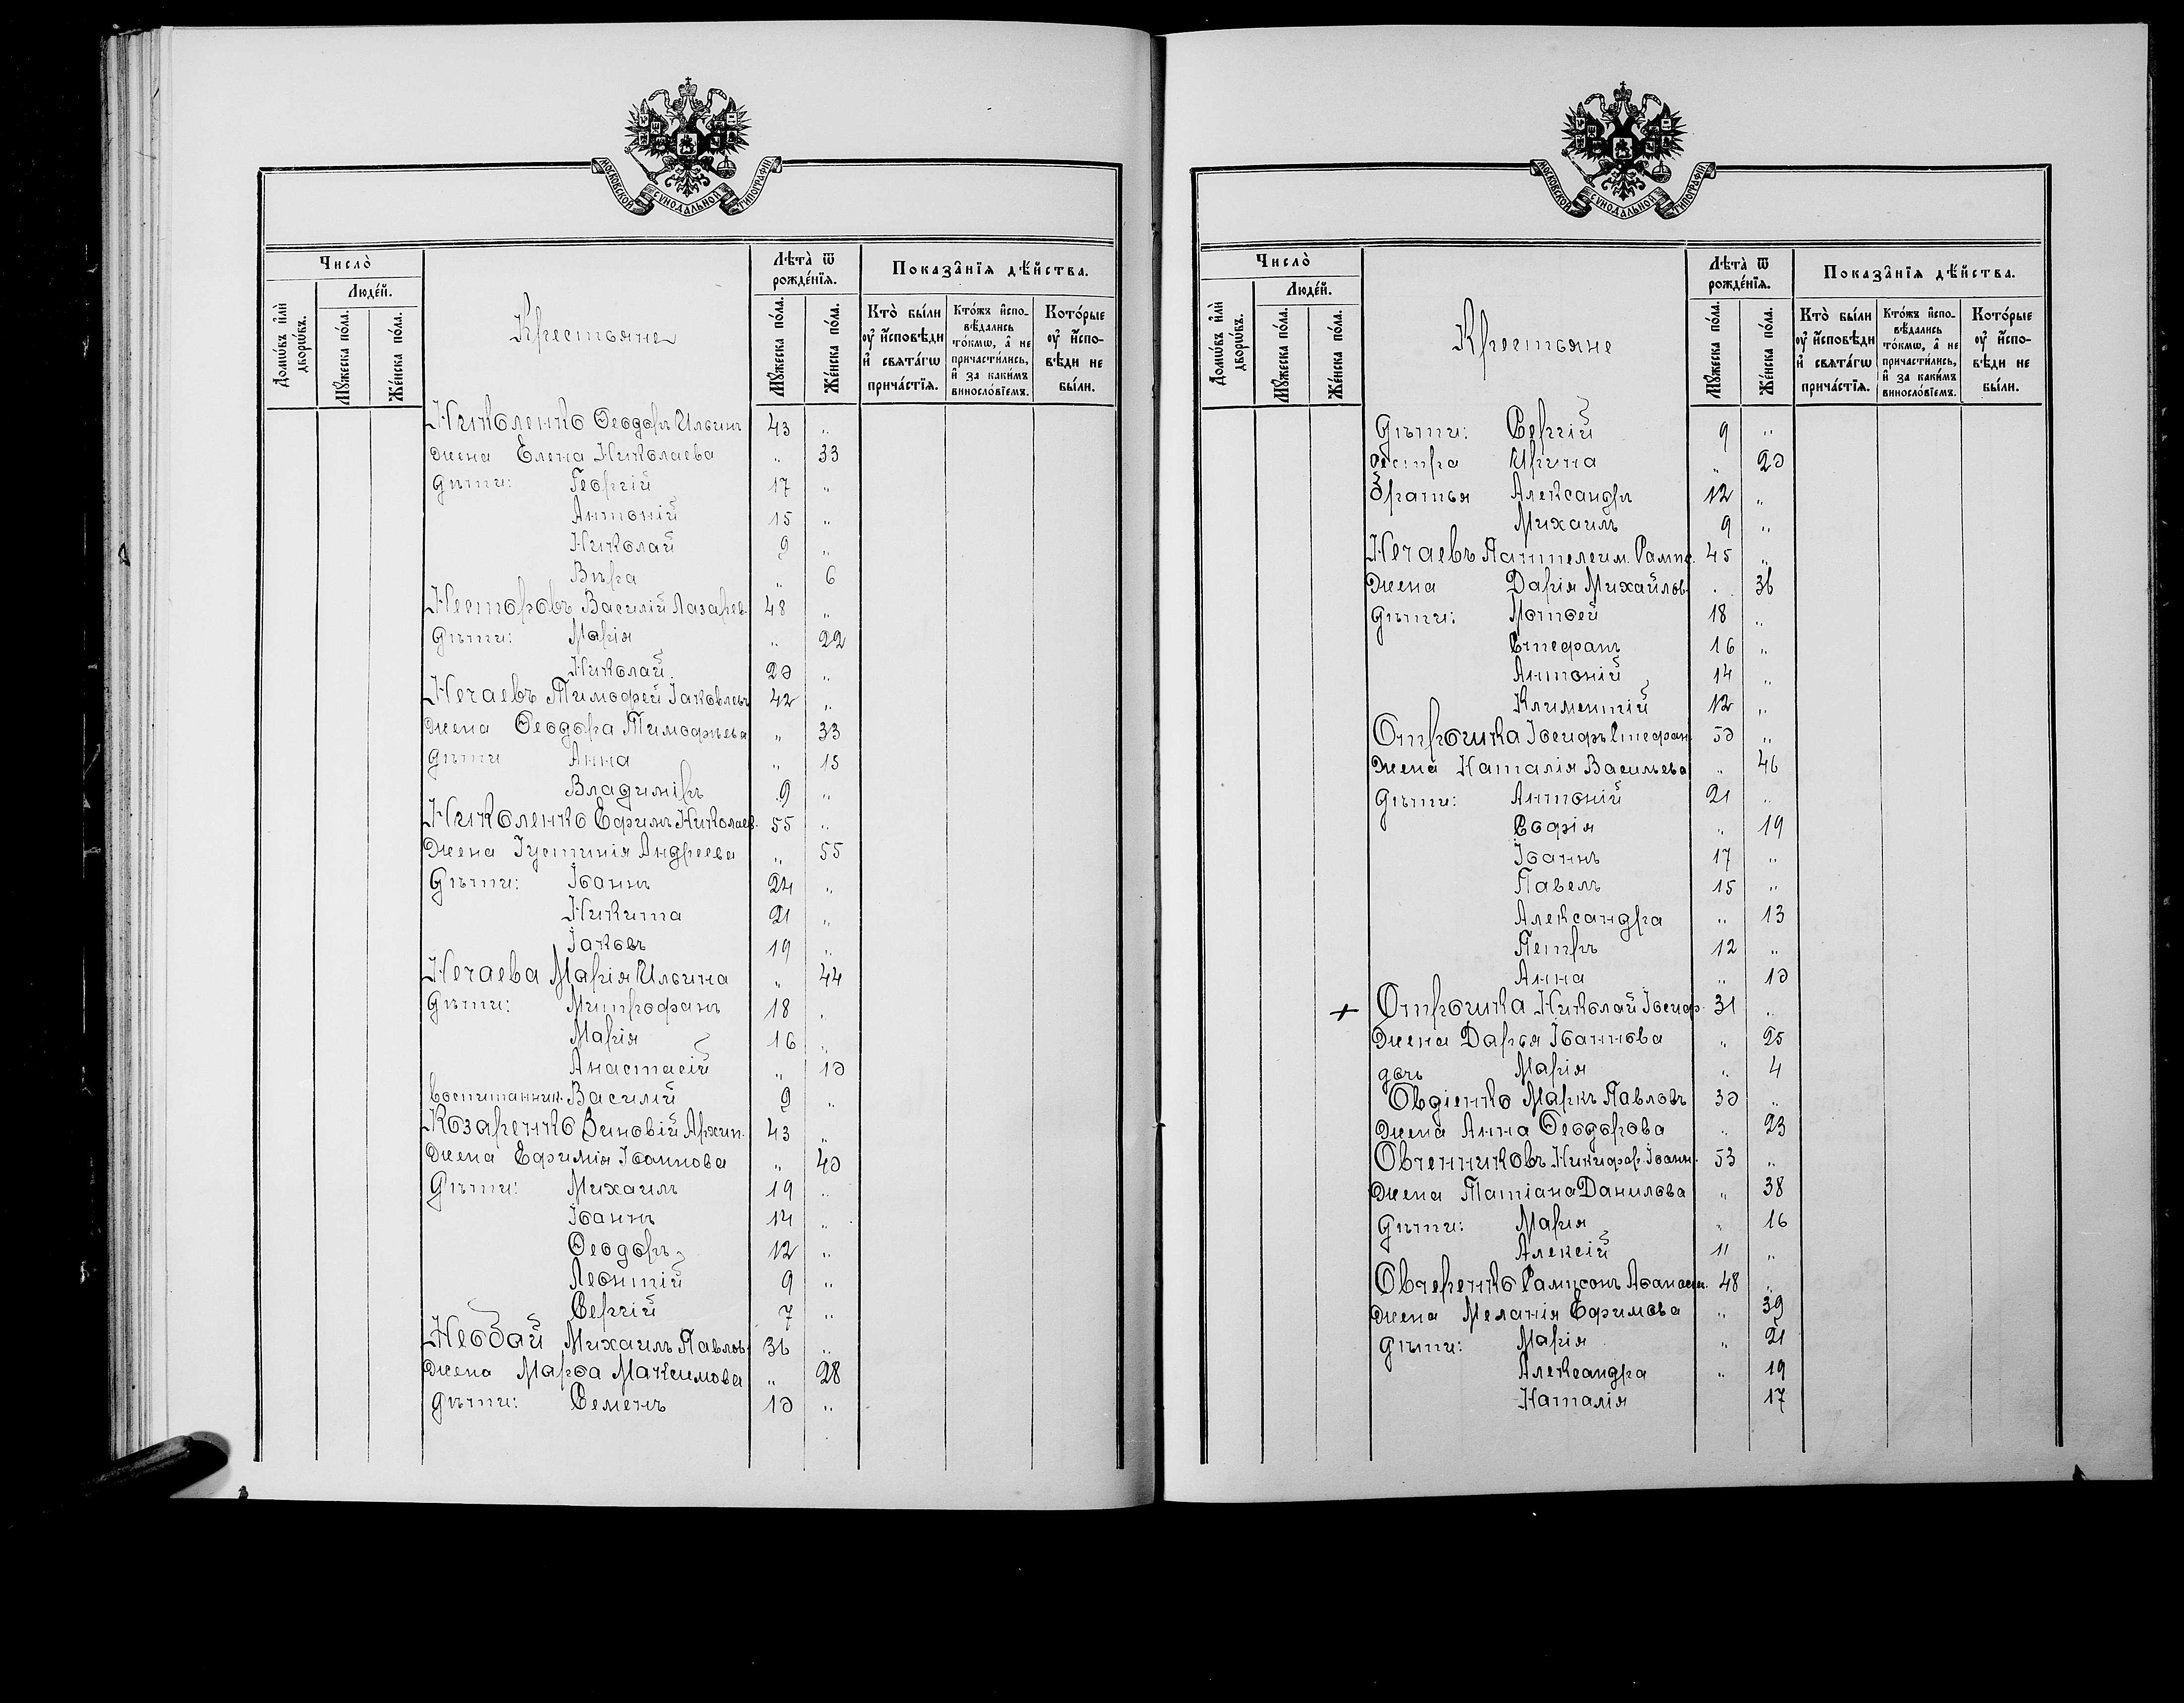 МОСКОВСКОЙ СУНОДАЛЬНОЙ ТИПОГРАФІИ
Число̀
Людє́й.
Домѡ́въ и҆лѝ дворѡ́въ.
Мꙋ́жеска по́ла.
Же́нска по́ла.
Крестьяне
Лѣта̀ ѿ рожде́нїѧ.
Мꙋ́жеска по́ла.
Же́нска по́ла.
Показа̑нїѧ дѣ́йства.
Кто̀ бы́ли ᲂу҆ и҆сповѣ́ди и҆ свѧта́гѡ прича́стїѧ.
Кто́жъ и҆спо-вѣ́дались то́кмѡ, а҆ не причасти́лись, и҆ за каки́мъ винословїемъ.
Кото́рые ᲂу҆ и҆спо-вѣ́ди не бы́ли.
Николенко Ѳеодоръ Ильинъ 43 „
жена Елена Николаева „ 33
дѣти: Георгій 17 „
Антоній 15 „
Николай 9 „
Вѣра „ 6
Несторовъ Василій Лазарев. 48 „
дѣти: Марія „ 22
Николай 20 „
Нечаевъ Тимофей Іаковлевъ 42 „
жена Ѳеодора Тимофѣева „ 33
дѣти Анна „ 15
Владиміръ 9 „
Николенко Ефимъ Николаев. 55 „
жена Іустинія Андреева „ 55
дѣти: Іоаннъ 24 „
Никита 21 „
Іаковъ 19 „
Нечаева Марія Ильина „ 44
дѣти: Митрофанъ 18 „
Марія 16 „
Анастасій „ 10
воспитанник. Василій 9 „
Козаренко Зиновій Архип. 43 „
жена Ефимія Іоаннова „ 40
дѣти: Михаилъ 19 „
Іоаннъ 14 „
Ѳеодоръ 12 „
Леонтій 9 „
Сергій 7 „
Необай Михаилъ Павлов. 36 „
жена Марѳа Максимова „ 28
дѣти: Семенъ 10 „
МОСКОВСКОЙ СУНОДАЛЬНОЙ ТИПОГРАФІИ
Число̀
Людє́й.
Домѡ́въ и҆лѝ дворѡ́въ.
Мꙋ́жеска по́ла.
Же́нска по́ла.
Крестьяне
Лѣта̀ ѿ рожде́нїѧ.
Мꙋ́жеска по́ла.
Же́нска по́ла.
Показа̑нїѧ дѣ́йства.
Кто̀ бы́ли ᲂу҆ и҆сповѣ́ди и҆ свѧта́гѡ прича́стїѧ.
Кто́жъ и҆спо-вѣ́дались то́кмѡ, а҆ не причасти́лись, и҆ за каки́мъ винословїемъ.
Кото́рые ᲂу҆ и҆спо-вѣ́ди не бы́ли.
дѣти: Сергій 9 „
сестра Ирина „ 20
братья Александръ 12 „
Михаилъ 9 „
Нечаевъ Пантелеим. Рампс. 45 „
жена Дарія Михайлов. „ 36
дѣти: Мотѳей 18 „
Стефанъ 16 „
Антоній 14 „
Климентій 12 „
Отрошка Іосифъ Стефан. 50 „
жена Наталія Васильева „ 46
дѣти: Антоній 21 „
Софія „ 19
Іоаннъ 17 „
Павелъ 15 „
Александра „ 13
Петръ 12 „
Анна „ 10
+ Отрошка Николай Іосиф. 31 „
жена Дарья Іоаннова „ 25
дочь Марія „ 4
Овдіенко Маркъ Павловъ 30 „
жена Анна Ѳеодорова „ 23
Овченниковъ Никифор. Іоанн. 53 „
жена Татіана Данилова „ 38
дѣти: Марія „ 16
Алексій 11 „
Овчеренко Сампсонъ Аѳанасьи. 48 „
жена Меланія Ефимова „ 39
дѣти: Марія „ 21
Александра „ 19
Наталія 17